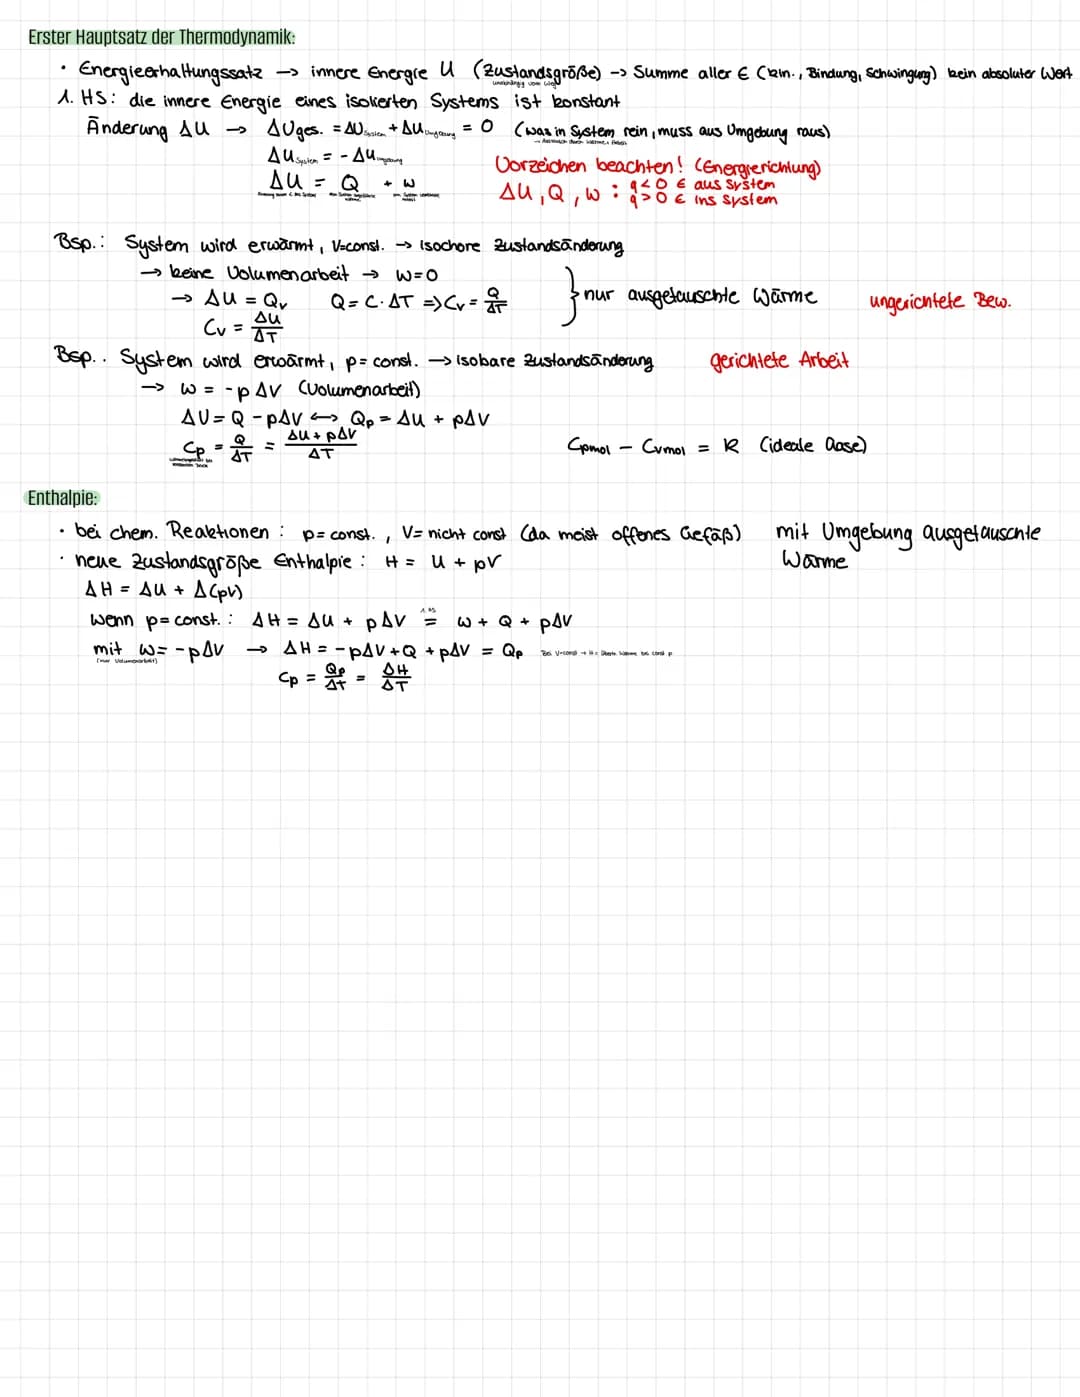 Erster Hauptsatz der Thermodynamik:
• Energieerhaltungssatz → innere Energie U (Zustandsgröße) → Summe aller E (kin., Bindung, Schwingung) kein absoluter Wert
unabhängig vom Weg
1. HS: die innere Energie eines isolierten Systems ist konstant
Änderung ΔU → ΔUges. = ΔUSystem + ΔUUmgebung = 0 (was in System rein, muss aus Umgebung raus)
→ Austausch durch Wärme, Arbeit
ΔUSystem = - ΔUUmgebung
Vorzeichen beachten! (Energierichtung)
ΔU = Q + W
ΔU, Q, W : q<0 E aus System
q>0 E ins System
Bsp.: System wird erwärmt, V=const. → Isochore Zustandsänderung
→ keine Volumenarbeit → W=0
→ ΔU = Qv Q = C · ΔT => Cv = Q/ΔT } nur ausgetauschte Wärme ungerichtete Bew.
Cv = ΔU/ΔT
Bsp.: System wird erwärmt, p= const. → Isobare Zustandsänderung gerichtete Arbeit
→ W = -pΔV (Volumenarbeit)
ΔU = Q - pΔV ↔ Qp = ΔU + pΔV
Cp = Q/ΔT = ΔU + pΔV/ΔT
Cpmol - Cvmol = R (ideale Gase)
Enthalpie:
• bei chem. Reaktionen : p= const. , V= nicht const (da meist offenes Gefäß) mit Umgebung ausgetauschte Wärme
• neue Zustandsgröße Enthalpie : H = U + pV
ΔH = ΔU + Δ(pV)
wenn p= const. : ΔH = ΔU + pΔV =1.HS W + Q + pΔV
mit W= -pΔV → ΔH = -pΔV + Q + pΔV = Qp
(nur Volumenarbeit)
Cp = Qp/ΔT = ΔH/ΔT